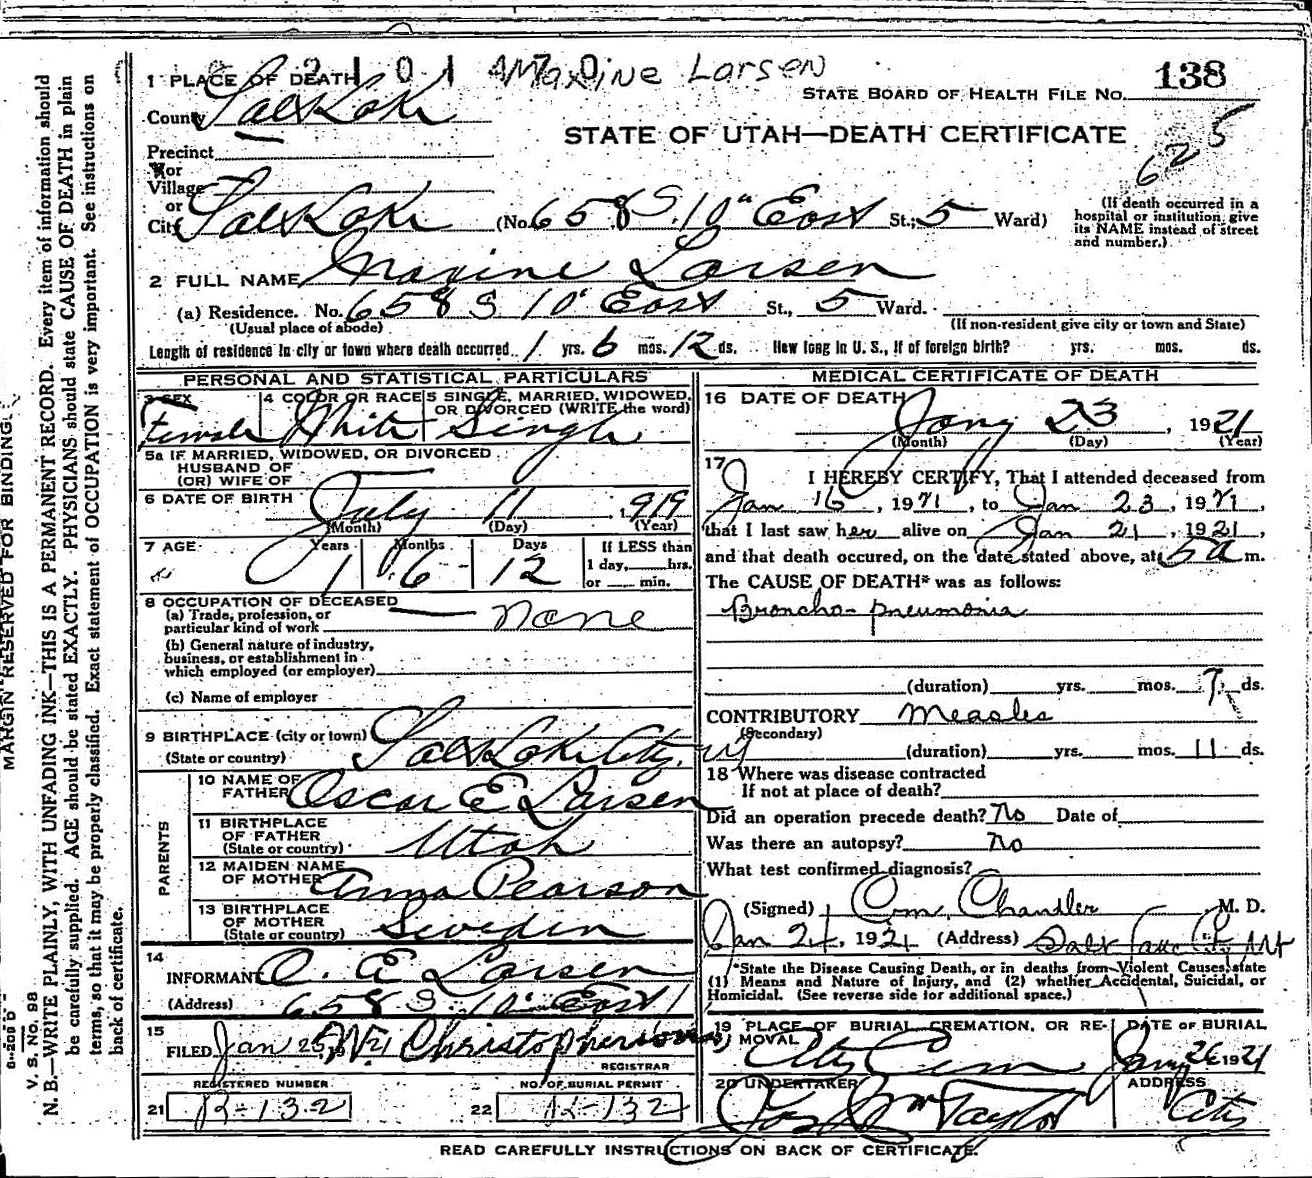 2101 Maxine Larsen
1 PLACE OF DEATH
138
STATE BOARD OF HEALTH FILE No.
County Salt Lake
STATE OF UTAH—DEATH CERTIFICATE
625
Precinct
or
Village
or
City Salt Lake (No. 658 S. 10" East St.; 5 Ward)
(If death occurred in a
hospital or institution, give
its NAME instead of street
and number.)
2 FULL NAME Maxine Larsen
(a) Residence. No. 658 S 10" East St., 5 Ward.
(Usual place of abode) (If non-resident give city or town and State)
Length of residence in city or town where death occurred 1 yrs. 6 mos. 12 ds. How long in U. S., if of foreign birth? yrs. mos. ds.
PERSONAL AND STATISTICAL PARTICULARS
3 SEX 4 COLOR OR RACE 5 SINGLE, MARRIED, WIDOWED,
OR DIVORCED (WRITE the word)
Female White Single
5a IF MARRIED, WIDOWED, OR DIVORCED
HUSBAND OF
(OR) WIFE OF
6 DATE OF BIRTH July 11, 1919
(Month) (Day) (Year)
7 AGE Years Months Days If LESS than
1 day, hrs.
or min.
1 6 12
8 OCCUPATION OF DECEASED
(a) Trade, profession, or
particular kind of work none
(b) General nature of industry,
business, or establishment in
which employed (or employer)
(c) Name of employer
9 BIRTHPLACE (city or town)
(State or country) Salt Lake City,
PARENTS
10 NAME OF
FATHER Oscar E Larsen
11 BIRTHPLACE
OF FATHER
(State or country) Utah
12 MAIDEN NAME
OF MOTHER Anna Pearson
13 BIRTHPLACE
OF MOTHER
(State or country) Sweden
14
INFORMANT O. E Larsen
(Address) 658 S. 10" East
15
FILED Jan 25, 1921 Christopherson
REGISTRAR
REGISTERED NUMBER NO. OF BURIAL PERMIT
21 B-132 22 B-132
MEDICAL CERTIFICATE OF DEATH
16 DATE OF DEATH
Jany 23, 1921
(Month) (Day) (Year)
17
I HEREBY CERTIFY, That I attended deceased from
Jan 16, 1921, to Jan 23, 1921,
that I last saw her alive on Jan 21, 1921,
and that death occured, on the date stated above, at 5 a m.
The CAUSE OF DEATH* was as follows:
Broncho-pneumonia
(duration) yrs. mos. 7 ds.
CONTRIBUTORY Measles
(Secondary)
(duration) yrs. mos. 11 ds.
18 Where was disease contracted
If not at place of death?
Did an operation precede death? No Date of
Was there an autopsy? No
What test confirmed diagnosis?
(Signed) Chandler M. D.
Jan 24, 1921 (Address) Salt Lake City Ut
*State the Disease Causing Death, or in deaths from Violent Causes, state
(1) Means and Nature of Injury, and (2) whether Accidental, Suicidal, or
Homicidal. (See reverse side for additional space.)
19 PLACE OF BURIAL, CREMATION, OR RE-
MOVAL DATE OF BURIAL
City Cem Jany 26 1921
20 UNDERTAKER ADDRESS
Jos Wm Taylor City
READ CAREFULLY INSTRUCTIONS ON BACK OF CERTIFICATE.
MARGIN RESERVED FOR BINDING.
V. S. No. 98
N. B.—WRITE PLAINLY, WITH UNFADING INK—THIS IS A PERMANENT RECORD. Every item of information should
be carefully supplied. AGE should be stated EXACTLY. PHYSICIANS should state CAUSE OF DEATH in plain
terms, so that it may be properly classified. Exact statement of OCCUPATION is very important. See instructions on
back of certificate.